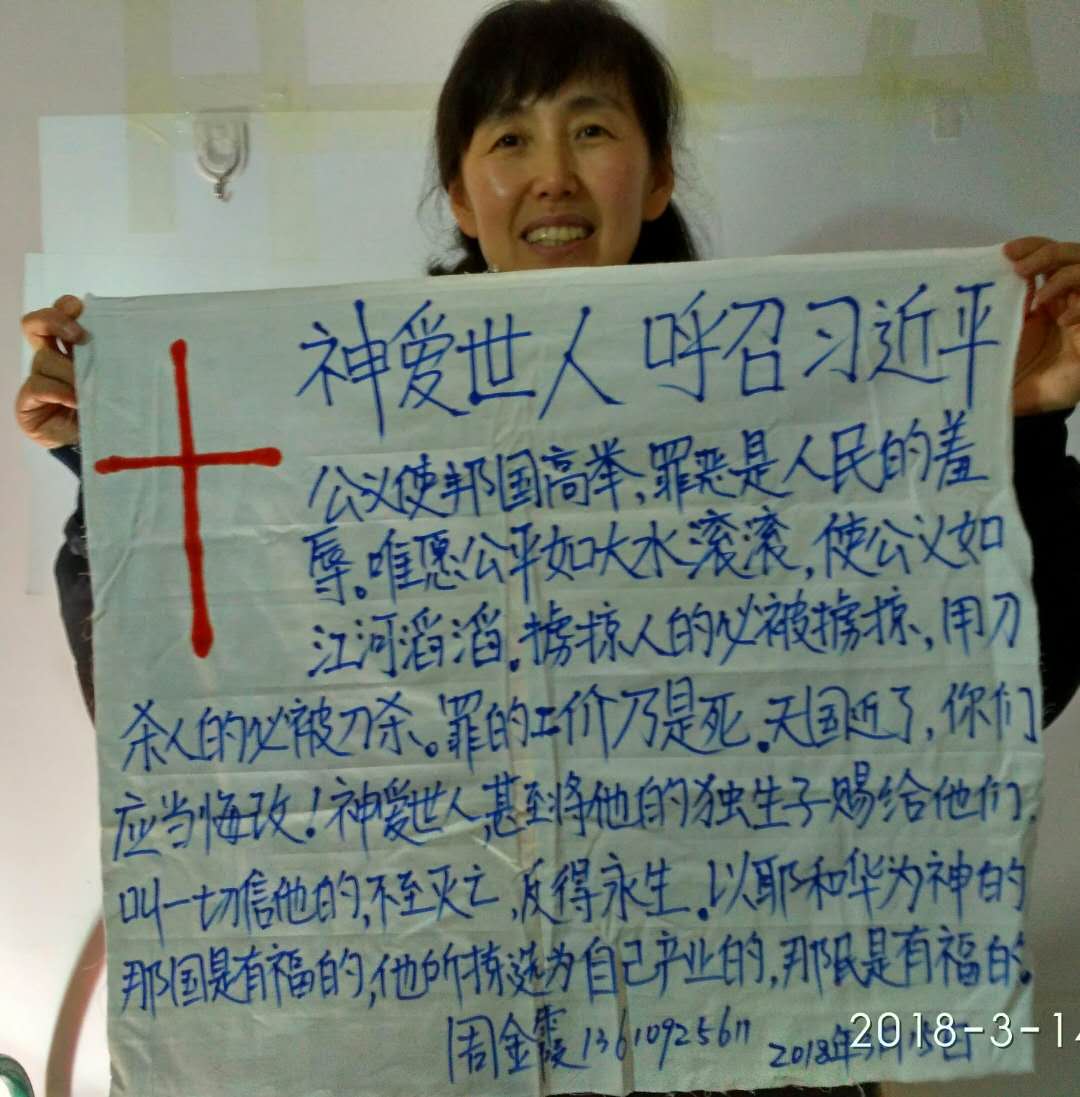 神爱世人 呼召习近平
公义使邦国高举,罪恶是人民的羞
辱。唯愿公平如大水滚滚,使公义如
江河滔滔.掳掠人的必被掳掠,用刀
杀人的必被刀杀。罪的工价乃是死.天国近了,你们
应当悔改!神爱世人,甚至将他的独生子赐给他们.
叫一切信他的,不至灭亡,反得永生.以耶和华为神的
那国是有福的,他所拣选为自己产业的,那民是有福的.
周金霞13610925611 2018年3月15日
2018-3-14